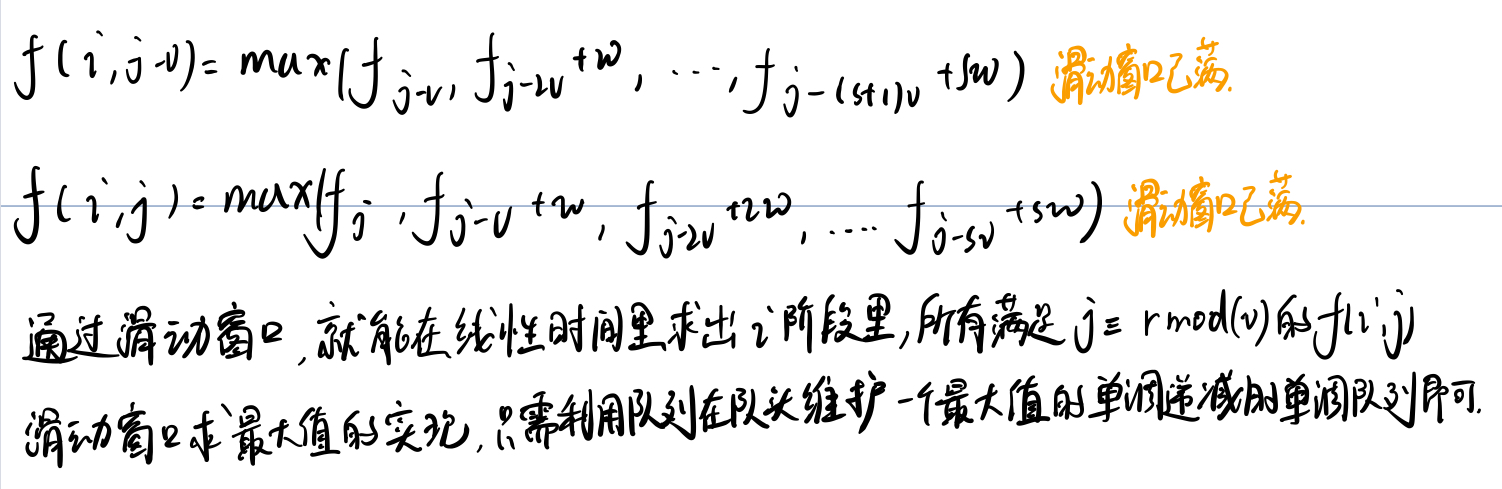 f(i,j-v)= max(f_{j-v}, f_{j-2v}+w, ···, f_{j-(s+1)v}+sw) 滑动窗口已满.
f(i,j)= max(f_j, f_{j-v}+w, f_{j-2v}+2w, ···· f_{j-sv}+sw) 滑动窗口已满.
通过滑动窗口,就能在线性时间里求出i阶段里,所有满足j≡rmod(v)的f(i,j)
滑动窗口求最大值的实现,只需利用队列在队头维护一个最大值的单调递减的单调队列即可.